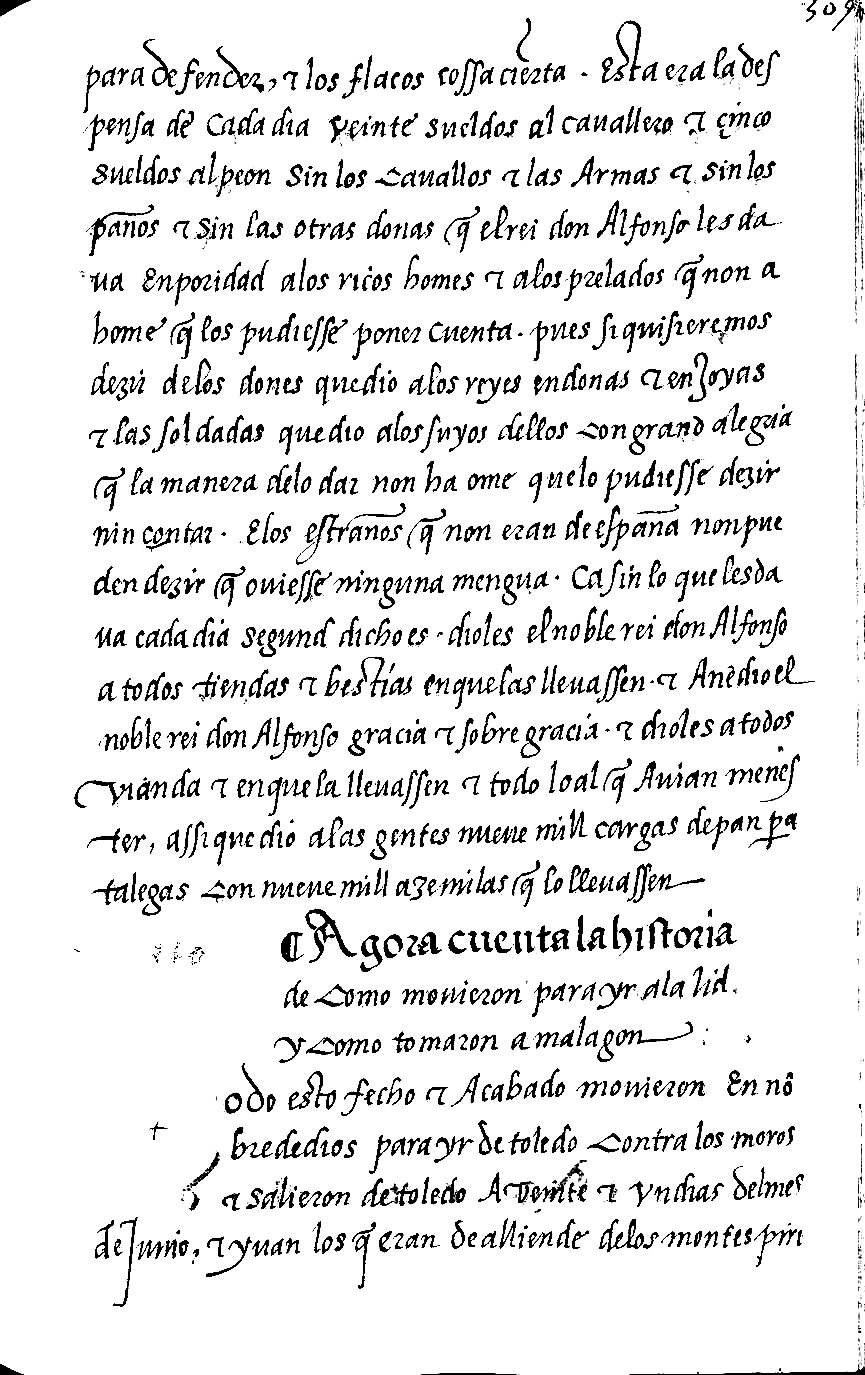 309
para defender, τ los flacos cossa cierta . Esta era la des
pensa de cada dia veinte sueldos al cauallero τ çinco
sueldos al peon sin los cauallos τ las Armas τ sin los
paños τ sin las otras donas q̃ el rei don Alfonso les da
ua Enporidad a los ricos homes τ a los prelados q̃ non a
home q̃ los pudiesse poner cuenta . pues si quisieremos
dezir de los dones que dio a los reyes en donas τ en Joyas
τ las soldadas que dio a los suyos dellos con grand alegria
q̃ la manera de lo dar non ha ome que lo pudiesse dezir
nin contar . E los estraños q̃ non eran de españa non pue
den dezir q̃ ouiesse ninguna mengua . Ca sin lo que les da
ua cada dia segund dicho es . dioles el noble rei don Alfonso
a todos tiendas τ bestias en que las lleuassen . τ Anedio el
noble rei don Alfonso gracia τ sobre gracia . τ dioles a todos
vianda τ en que la lleuassen τ todo lo al q̃ Auian menes
ter, assi que dio a las gentes nueue mill cargas de pan pa
talegas con nueue mill azemilas q̃ lo lleuassen
¶ Agora cuenta la historia
de como mouieron para yr a la lid .
y como tomaron a malagon
odo esto fecho τ Acabado mouieron En nõ
bre de dios para yr de toledo contra los moros
τ salieron de toledo A veinte τ vn dias del mes
de Junio, τ yuan los q̃ eran de alliende de los montes piri